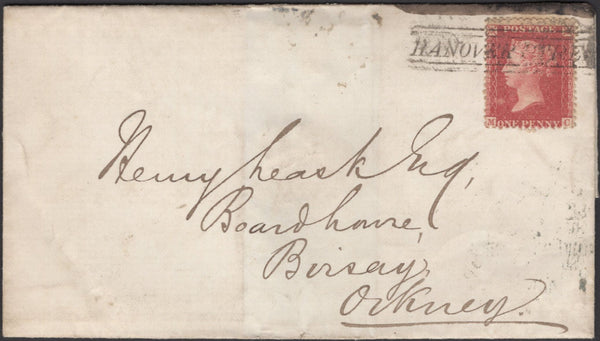 POSTAGE
HANOVER STREET
M ONE PENNY
Henry Leask Esq,
Boardhouse,
Birsay,
Orkney.